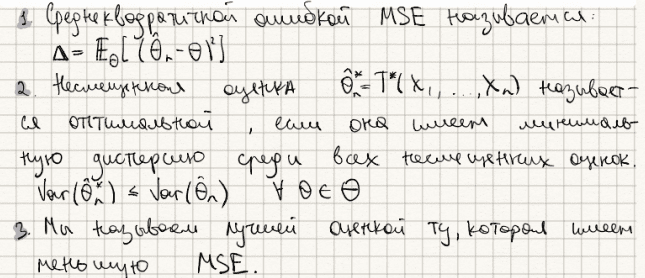 1. Среднеквадратичной ошибкой MSE называется:
Δ = 𝔼_θ[(θ̂ₙ - θ)²]
2. Несмещенная оценка θ̂ₙ* = T*(X₁, ..., Xₙ) называет-
ся оптимальной, если она имеет минималь-
ную дисперсию среди всех несмещенных оценок.
Var(θ̂ₙ*) ≤ Var(θ̂ₙ) ∀ θ ∈ Θ
3. Мы называем лучшей оценкой ту, которая имеет
меньшую MSE.